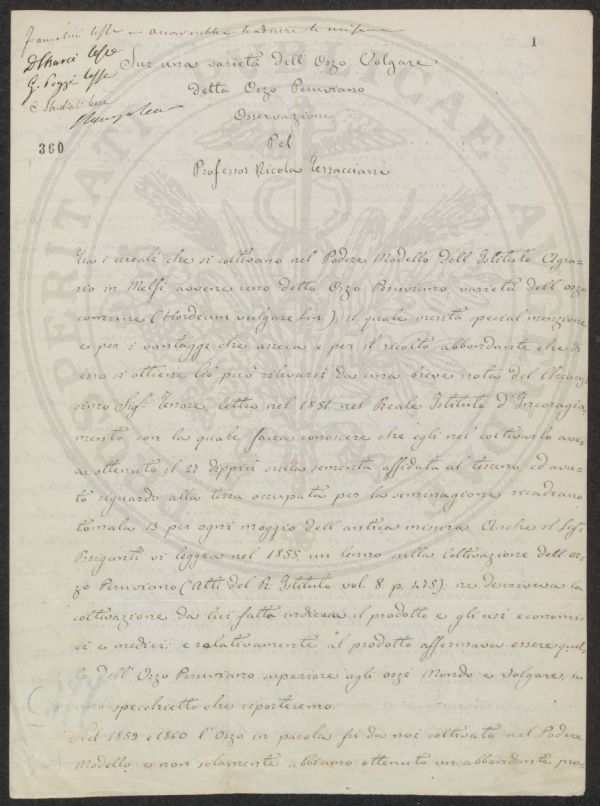 1
Sur una varietà dell'Orzo Volgare
detto Orzo Peruviano
Osservazione
Pel
Professor Nicola Terracciani
360
Tra i cereali che si coltivano nel Podere Modello dell'Istituto Agra-
rio in Melfi, avvene uno detto Orzo Peruviano, varietà dell'orzo
comune (Hordeum vulgare Lin.); il quale merita special menzione
e per i vantaggi che arreca e per il ricolto abbondante che di
esso si ottiene. Ciò può rilevarsi da una breve nota del Chiaris-
simo Sigr. Tenore, letta nel 1851 nel Reale Istituto d'Incoraggia-
mento con la quale facea conoscere che egli nel coltivarlo ave-
a ottenuto il 27 dippiù sulla sementa affidata al terreno, ed avu-
to riguardo alla terra occupata per la seminagione ricadeano
tomola 15 per ogni moggio dell'antica misura. Anche il Sigr.
Briganti vi leggea nel 1855 un lavoro sulla Coltivazione dell'or-
zo Peruviano (Atti del R. Istituto vol. 8 p. 475); ne descriveva la
coltivazione da lui fatta indicava il prodotto e gli usi economi-
ci e medici; e relativamente al prodotto affermava essere quel-
lo dell'Orzo Peruviano superiore agli orzi Mondo e Volgare, in
uno specchietto che riporteremo.
Nel 1859 e 1860 l'Orzo in parola fu da noi coltivato nel Podere
Modello, e non solamente abbiamo ottenuto un abbondante pro-